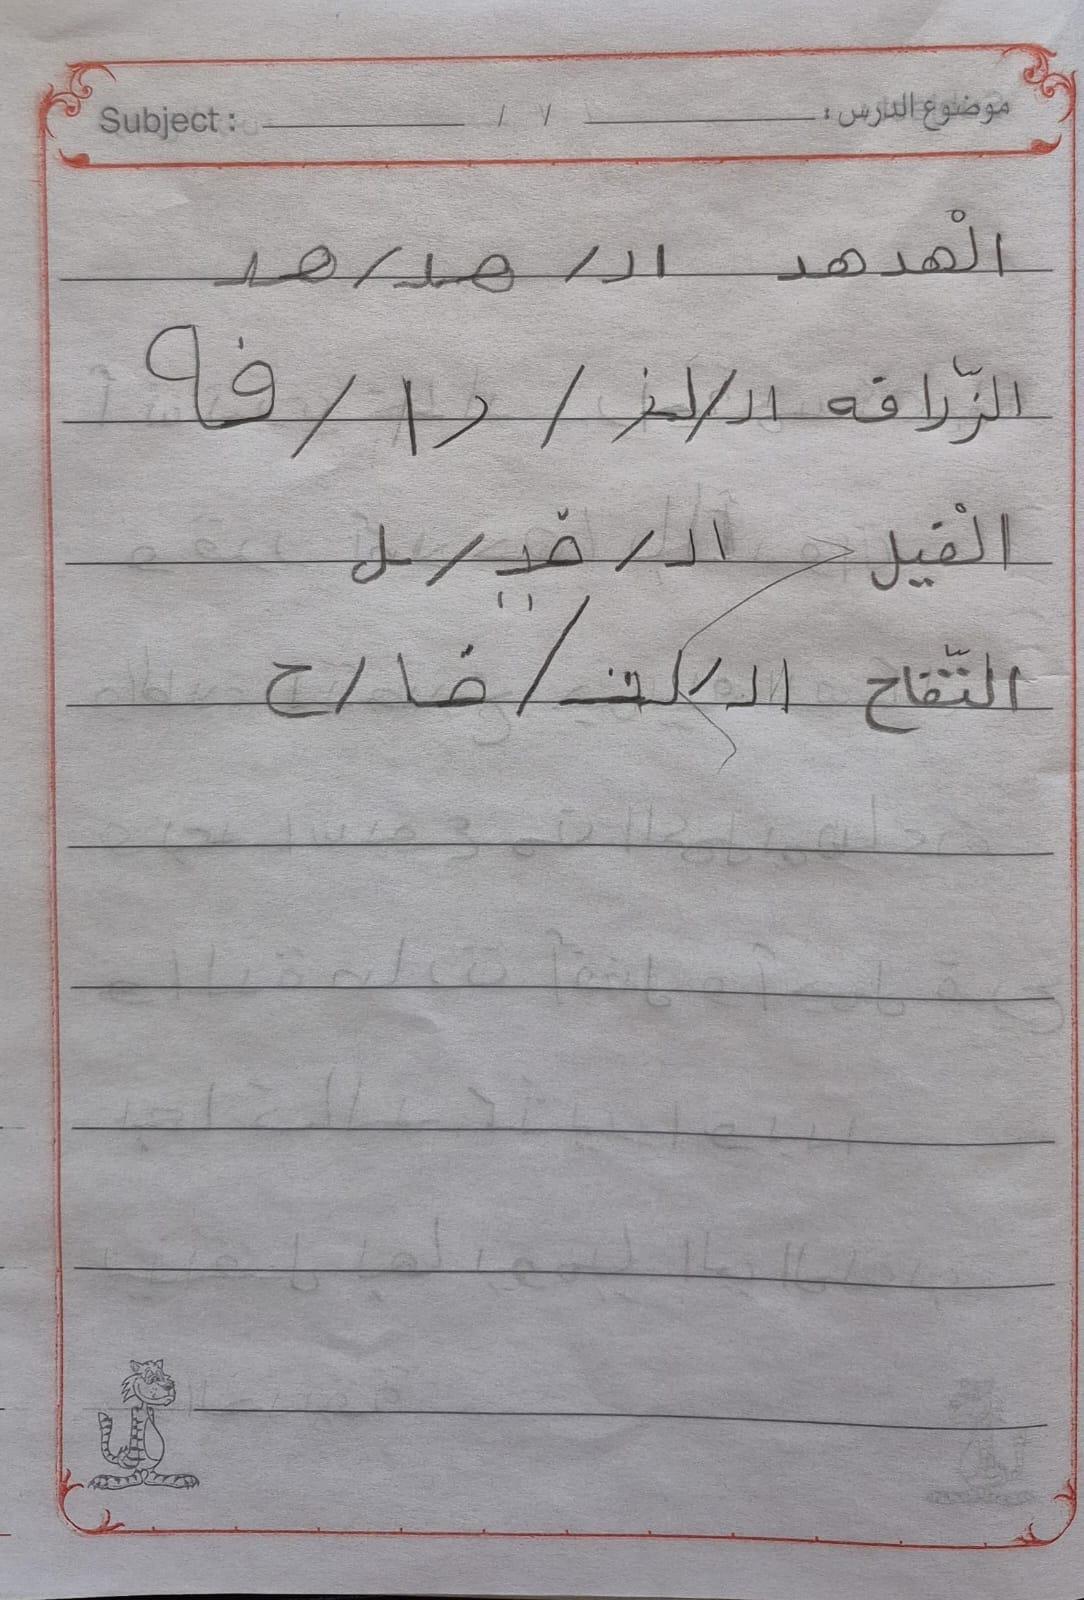 Subject : / / موضوع الدرس :
الْهدهد الـ / هد / هد
الزّرافه الـ / لز / را / فه
الْفيل الـ / فيـ / ل
التّفاح الـ / لتـ / فا / ح